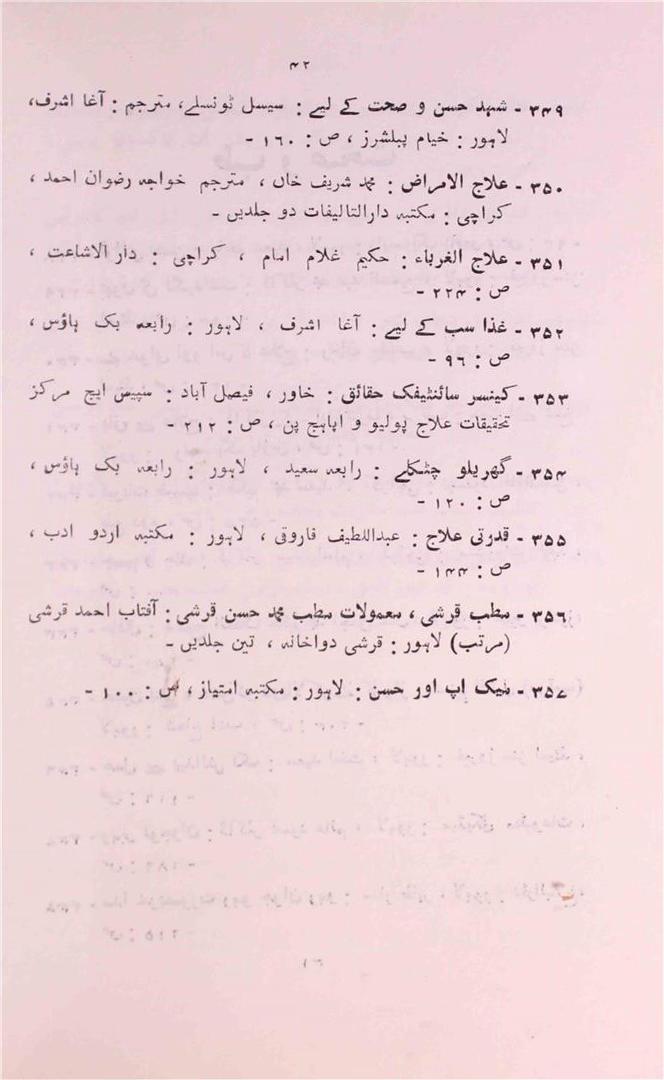 ۴۲
۳۴۹ - شہد حسن و صحت کے لیے : سیسل ٹونسلے، مترجم : آغا اشرف،
لاہور : خیام پبلشرز ، ص : ۱۶۰ -
۳۵۰ - علاج الامراض : محمد شریف خاں ، مترجم خواجہ رضوان احمد ،
کراچی : مکتبہ دارالتالیفات دو جلدیں -
۳۵۱ - علاج الغرباء : حکیم غلام امام ، کراچی : دار الاشاعت ،
ص : ۲۲۴ -
۳۵۲ - غذا سب کے لیے : آغا اشرف ، لاہور : رابعہ بک ہاؤس ،
ص : ۹۶ -
۳۵۳ - کینسر سائنٹیفک حقائق : خاور ، فیصل آباد : سپیس ایج مرکز
تحقیقات علاج پولیو و اپاہج پن ، ص : ۲۱۲ -
۳۵۴ - گھریلو چٹکلے : رابعہ سعید ، لاہور : رابعہ بک ہاؤس ،
ص : ۱۲۰ -
۳۵۵ - قدرتی علاج : عبداللطیف فاروقی ، لاہور : مکتبہ اردو ادب ،
ص : ۱۴۴ -
۳۵۶ - مطب قرشی ، معمولات مطب محمد حسن قرشی : آفتاب احمد قرشی
(مرتب) لاہور : قرشی دواخانہ ، تین جلدیں -
۳۵۷ - میک اپ اور حسن : لاہور : مکتبہ امتیاز ، ص : ۱۰۰ -